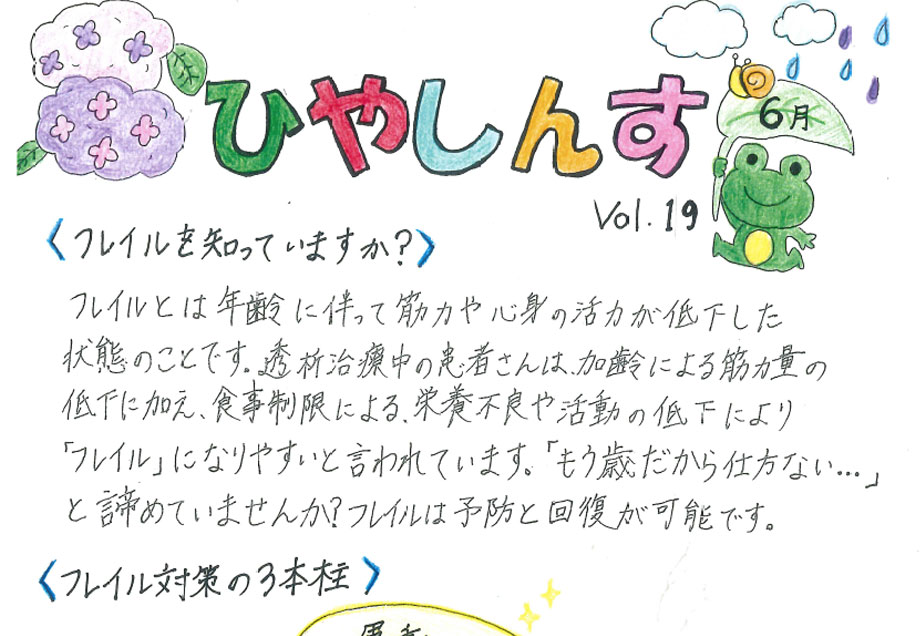 ひやしんす
6月
Vol.19
〈フレイルを知っていますか?〉
フレイルとは年齢に伴って筋力や心身の活力が低下した
状態のことです。透析治療中の患者さんは、加齢による筋力量の
低下に加え、食事制限による、栄養不良や活動の低下により
「フレイル」になりやすいと言われています。「もう歳だから仕方ない…」
と諦めていませんか?フレイルは予防と回復が可能です。
〈フレイル対策の3本柱〉